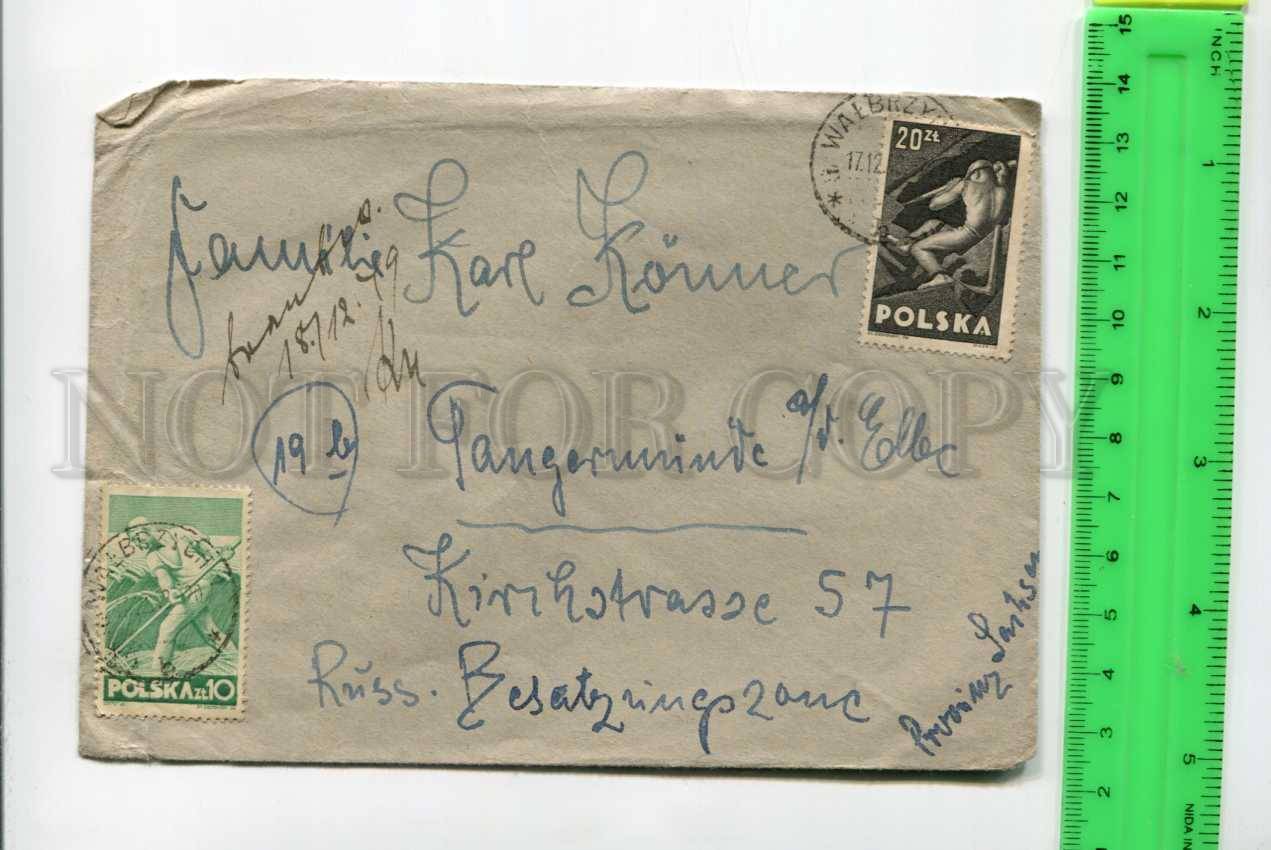 WAŁBRZY
17.12
20 ZŁ
POLSKA
Familie Karl Körner
18./12.
19 b
Tangermünde a/d. Elbe
Kirchstrasse 57
Russ. Besatzungszone
Provinz Sachsen
WAŁBRZYCH
POLSKA ZŁ 10
NOT FOR COPY
INCH
15
14
13
12
11
10
9
8
7
6
5
4
3
2
1
2
3
4
5
NIDA IN